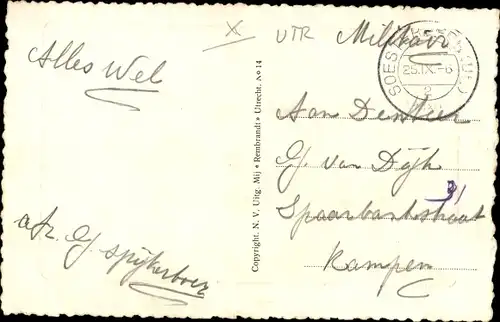 x UTR Militair
Alles Wel
SOEST
25.IX.-6
2
Aan Den Heer
G/. van Dijk
31
Spaarbankstraat
Kampen
afz. G/. Spijkerboer
Copyright. N. V. Uitg. Mij « Rembrandt » Utrecht. No 14